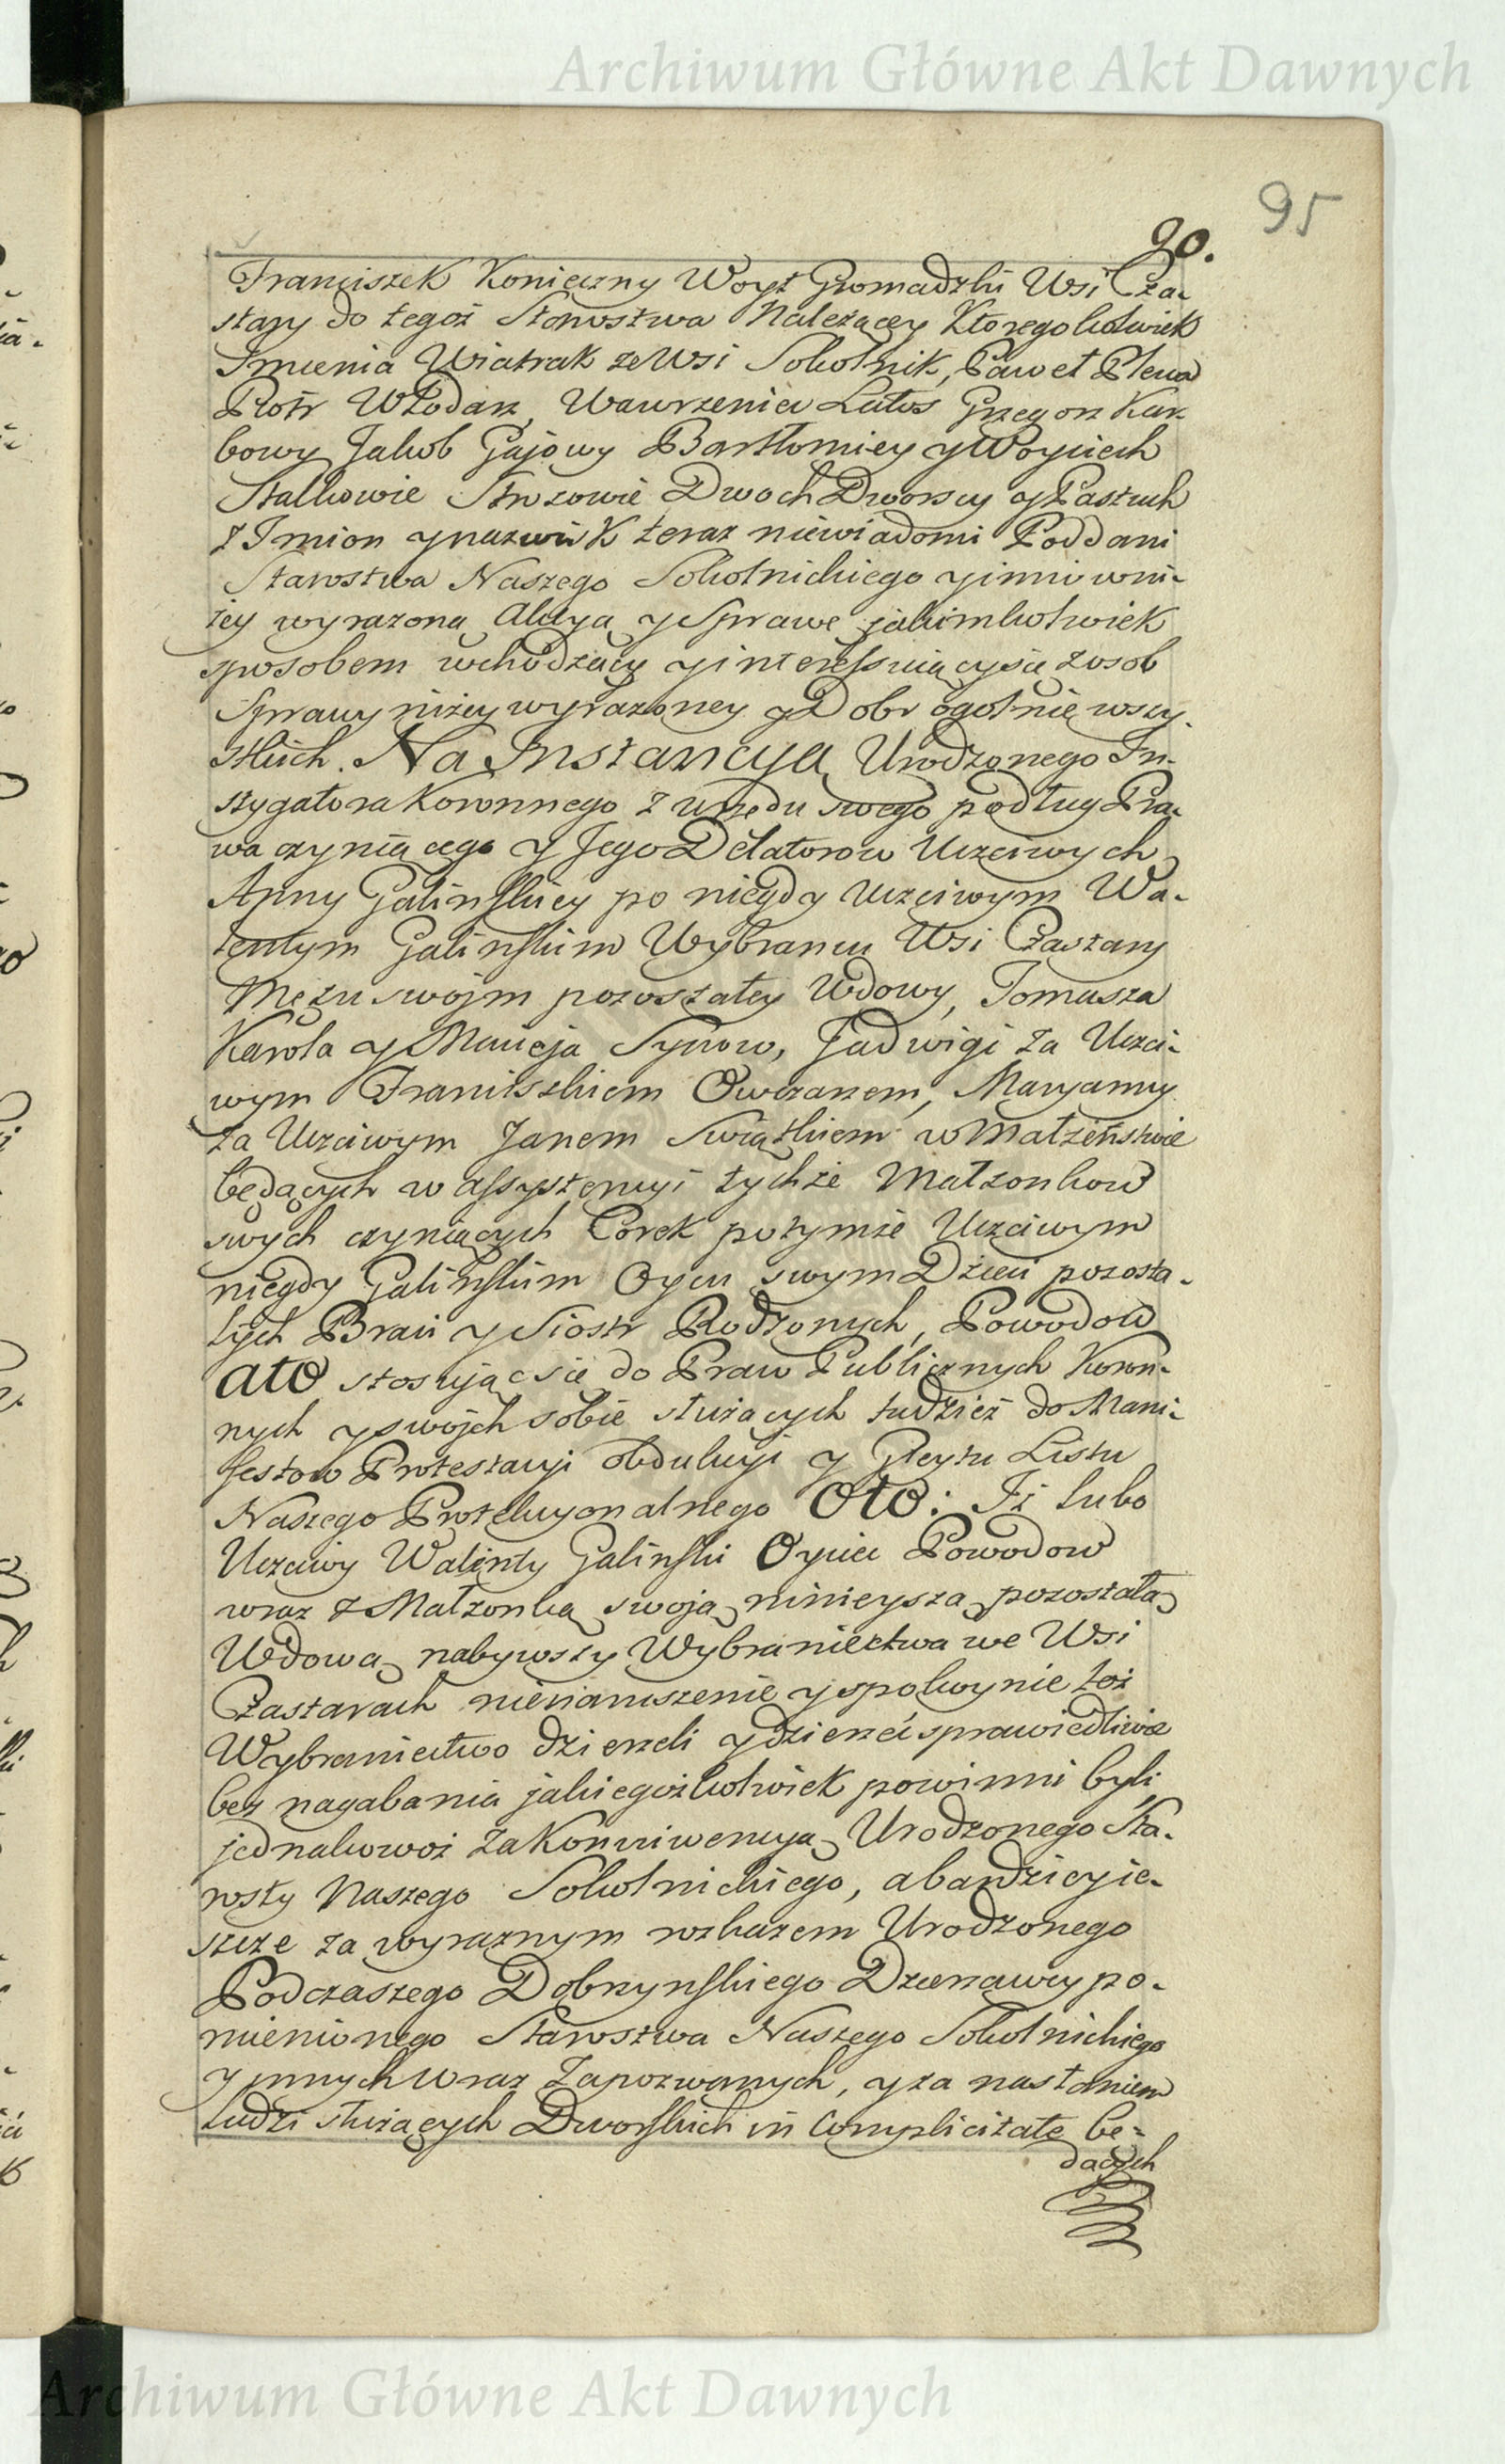 Archiwum Główne Akt Dawnych
95
90.
Franciszek Konieczny Woyt Gromadzki Wsi Cza-
stary do tegoż Starostwa Należącey Ktoregokolwiek
Imienia Wiatrak ze Wsi Sokolnik, Paweł Plewa
Piotr Włodarz, Wawrzeniec Latos Grzegorz Kar
bowy Jakob Gajowy Bartłomiey y Woyciech
Stalkowie Strozowie Dwoch Dworscy y Pastuch
z Imion y nazwisk teraz niewiadomi Poddani
Starostwa Naszego Sokolnickiego y inni w ni-
żey wyrażoną Akcyą y Sprawę jakimkolwiek
sposobem wchodzący y interessuiący się z osob
Sprawy niżey wyrażoney y Dobr ogolnie wszy-
stkich. Na Instancyą Urodzonego In-
stygatora Koronnego z urzędu swego podług Pra-
wa czyniącego y Jego Delatorow Uczciwych
Anny Galinskiey po niegdy Uczciwym Wa-
lentym Galinskim Wybrancu Wsi Czastary
Mężu swoim pozostałey Wdowy, Tomasza
Karola y Macieja Synow, Jadwigi za Uczci-
wym Franciszkiem Owczarzem, Maryanny
za Uczciwym Janem Swiątkiem w Małżeństwie
będących w assystencyi tychże Małżonkow
swych czyniących Corek po tymże Uczciwym
niegdy Galinskim Oycu swym Dzieci pozosta-
łych Braci y Siostr Rodzonych, Powodow
ATO stosując się do Praw Publicznych Koron-
nych y swoich sobie służących tudzież do Mani-
festow Protestacyi obdukcyi y Gleytu Listu
Naszego Protekcyonalnego OTO: Iż lubo
Uczciwy Walenty Galinski Oyciec Powodow
wraz z Małżonką swoją ninieyszą pozostałą
Wdową nabywszy Wybraniectwa we Wsi
Czastarach nienaruszenie y spokoynie toż
Wybraniectwo dzierżeli y dzierżeć sprawiedliwie
bez nagabania jakiegożkolwiek powinni byli,
jednakowoż za Konniwencyą Urodzonego Sta-
rosty Naszego Sokolnickiego, a bardziey je-
szcze za wyraznym rozkazem Urodzonego
Podczaszego Dobrzynskiego Dzierżawcy po-
mienionego Starostwa Naszego Sokolnickiego
y innych wraz Zapozwanych, y za nasłaniem
ludzi służących Dworskich in Complicitate bę-
dących
Archiwum Główne Akt Dawnych